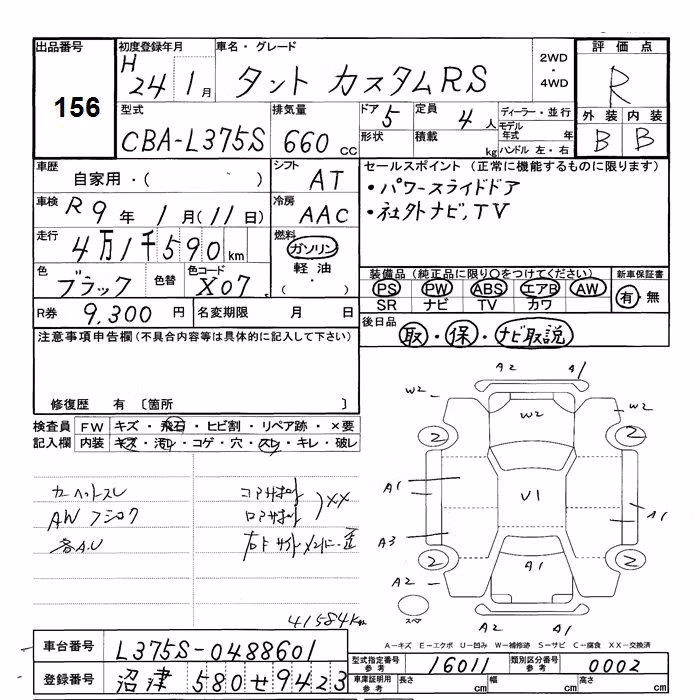 出品番号 初度登録年月 車名・グレード 2WD・4WD 評価点
156 H 24 1月 タント カスタムRS R
型式 排気量 ドア 5 定員 4人 ディーラー・並行 外装 内装
CBA-L375S 660 cc 形状 積載 kg モデル年式 年 B B
ハンドル 左・右
車歴 自家用・( ) シフト AT セールスポイント (正常に機能するものに限ります)
車検 R 9年 1月(11日) 冷房 AAC ・パワースライドドア
・社外ナビ,TV
走行 4万1千590km 燃料 ガソリン
軽油
・( )
色 ブラック 色替 色コード X07
装備品 (純正品に限り○をつけてください) 新車保証書
PS PW ABS エアB AW 有・無
SR ナビ TV カワ
R券 9,300円 名変期限 月 日
後日品 取・保・ナビ取説
注意事項申告欄 (不具合内容等は具体的に記入して下さい)
修復歴 有 〔箇所 〕
検査員記入欄 FW キズ・飛石・ヒビ割・リペア跡・×要
内装 キズ・汚れ・コゲ・穴・スレ・キレ・破レ
カーペットスレ
コアサポート
XX
41584km
A2 A1
W2 W2
W2
2 2
A1 V1 A1
A3
2 2
A2 A1
スペア
A2 A1
A-キズ E-エクボ U-凹み W-補修跡 S-サビ C-腐食 XX-交換済
車台番号 L375S-0488601
型式指定番号 参考 16011 類別区分番号 参考 0002
登録番号 沼津 580 せ 9423
車庫証明用 参考 長さ cm 幅 cm 高さ cm